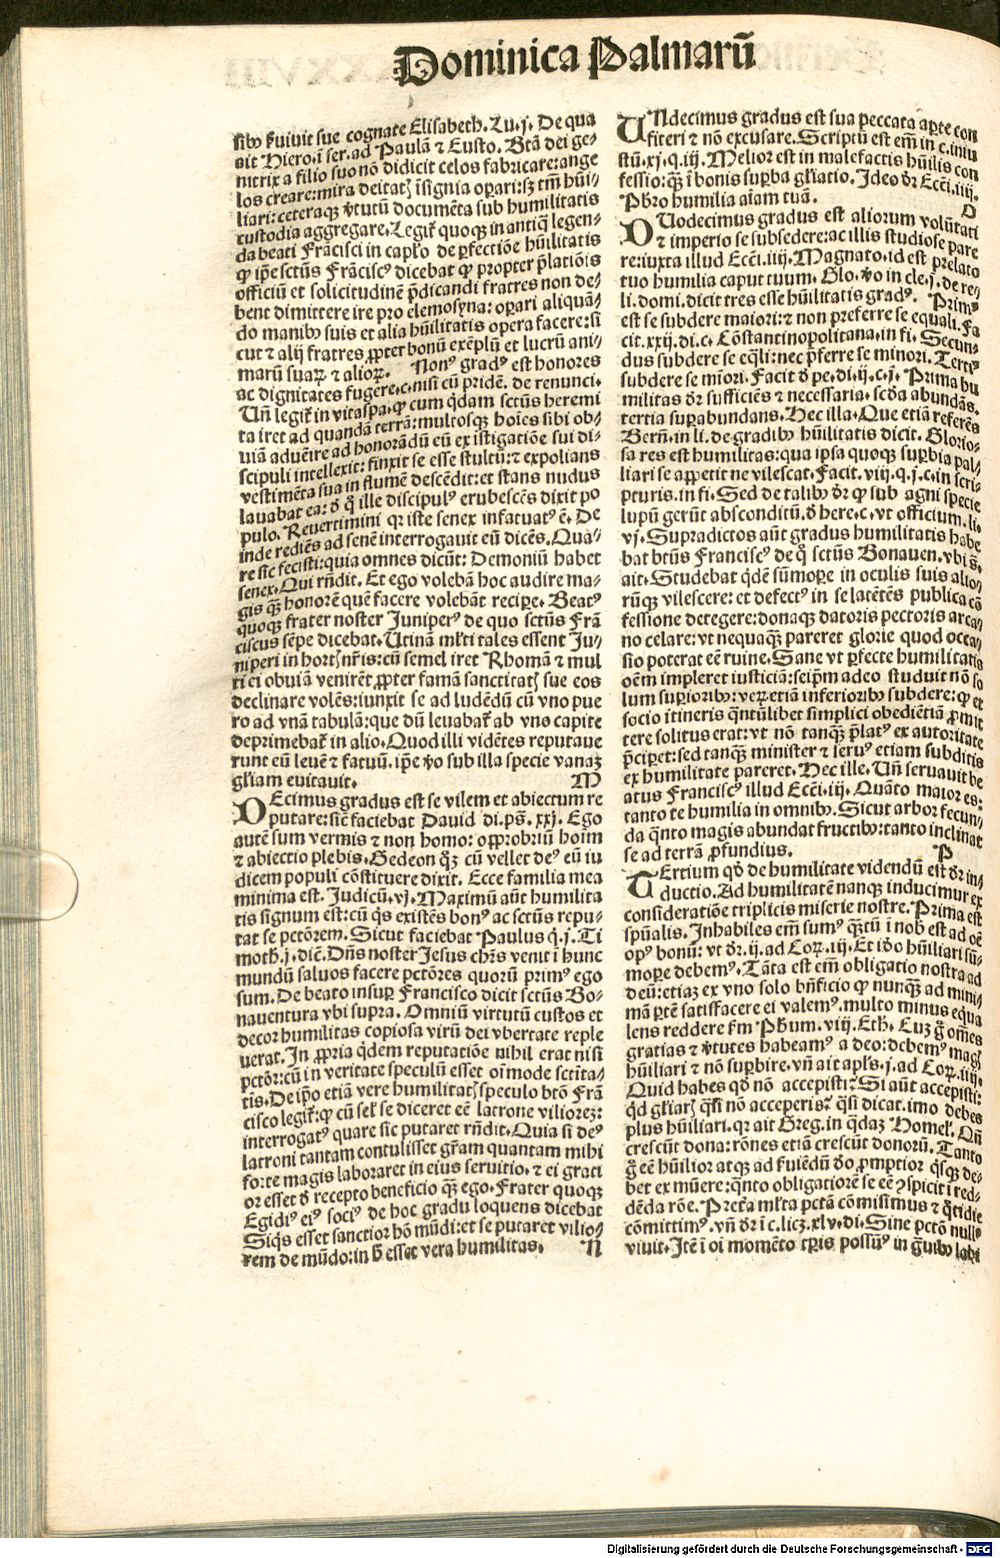 Dominica Palmarū
sibꝫ ẜuiuit sue cognate Elisabeth. Lu. j. De qua
ait Hiero. ī ser. ad Paulā ⁊ Eusto. Btā dei ge-
nitrix a filio suo nō didicit celos fabricare: ange
los creare: mira deitatꝭ īsignia oꝑari: sꝫ tm̄ hūi-
liari: ceteraqꝫ v̄tutū documēta sub humilitatis
custodia aggregare. Legit᷑ quoqꝫ in antiq̄ legen-
da beati Frācisci in capl̄o de ꝑfectiōe hūilitatis
ꝙ ip̄e sctūs Frāciscꝰ dicebat ꝙ propter p̄latiōis
officiū et solicitudinē p̄dicandi fratres non de-
bent dimittere ire pro elemosyna: oꝑari aliquā-
do manibꝫ suis et alia hūilitatis opera facere: si
cut ⁊ alij fratres ꝓpter bonū exēplū et lucrū ani-
marū suaꝝ ⁊ alioꝝ. Nonꝰ gradꝰ est honores
ac dignitates fugere. c. nisi cū pridē. de renunci.
Un̄ legit᷑ in vitaspa. ꝙ cum q̄dam sctūs heremi
ta iret ad quandā terrā: multosqꝫ hoīes sibi ob-
uiā aduēire ad honorādū eū ex īstigatiōe sui di-
scipuli intellexit: finxit se esse stultū: ⁊ expolians
vestimēta sua in flumē descēdit: et stans nudus
lauabat ea: ō q̄ ille discipulꝰ erubescēs dixit po
pulo. Reuertimini qꝛ iste senex infatuatꝰ ē. De
inde rediēs ad senē interrogauit eū dicēs. Quā-
re sic fecisti: quia omnes dicūt: Demoniū habet
senex. Qui rn̄dit. Et ego volebā hoc audire ma-
gis qꝫ̄ honorē quē facere volebāt reciꝑe. Beatꝰ
quoqꝫ frater noster Juniperꝰ de quo sctūs Frā
ciscus sēpe dicebat. Utinā ml̄ti tales essent Ju-
niperi in hortꝭ nr̄is: cū semel iret Rhomā ⁊ mul
ti ei obuiā venirēt ꝓpter famā sanctitatꝭ sue eos
declinare volēs: iunxit se ad ludēdū cū vno pue
ro ad vnā tabulā: que dū leuabat᷑ ab vno capite
deprimebat᷑ in alio. Quod illi vidētes reputaue
runt eū leuē ⁊ fatuū. ip̄e v̄o sub illa specie vanaꝫ
gl̄iam euitauit. M
DEcimus gradus est se vilem et abiectum re
putare: sic̄ faciebat Dauid di. pš. xxj. Ego
autē sum vermis ⁊ non homo: opꝓbriū hoīm
⁊ abiectio plebis. Gedeon qꝫ cū vellet deꝰ eū iu
dicem populi cōstituere dixit. Ecce familia mea
minima est. Judicū. vj. Maximū aūt humilita
tis signum est: cū q̄s existēs bonꝰ ac sctūs repu-
tat se pctōrem. Sicut faciebat Paulus q̄. j. Ti
moth. j. dic̄. Dn̄s noster Jesus chr̄s venit ī hunc
mundū saluos facere pctōres quorū primꝰ ego
sum. De beato insuꝑ Francisco dicit sctūs Bo-
nauentura vbi supra. Omniū virtutū custos et
decor humilitas copiosa virū dei vbertate reple
uerat. In ꝓpria q̄dem reputatiōe nihil erat nisi
pctōr: cū in veritate speculū esset oīmode sctēta-
tis. De ip̄o etiā vere humilitatꝭ speculo btō Frā
cisco legit᷑: ꝙ cū sel̄ se diceret eē latrone vilioreꝫ:
interrogatꝰ quare sic putaret rn̄dit. Quia si deꝰ
latroni tantam contulisset gr̄am quantam mihi
forte magis laboraret in eius seruitio. ⁊ ei grati
or esset ō recepto beneficio qꝫ̄ ego. Frater quoqꝫ
Egidiꝰ eiꝰ sociꝰ de hoc gradu loquens dicebat
Siq̄s esset sanctior hō mūdi: et se putaret vilio-
rem de mūdo: in h̄ esset vera humilitas. N
UNdecimus gradus est sua peccata aꝑte con
fiteri ⁊ nō excusare. Scriptū est em̄ in c. iniu
stū. xj. q. iij. Melior est in malefactis hūilis con
fessio: qꝫ̄ ī bonis suꝑba gl̄iatio. Ideo dr̄ Eccī. iiij.
Pb̄ro humilia aīam tuā. O
DUodecimus gradus est aliorum volūtati
⁊ imperio se subsedere: ac illis studiose pare
re: iuxta illud Eccī. iiij. Magnato. id est prelato
tuo humilia caput tuum. Glo. v̄o in cle. j. de re-
li. domi. dicit tres esse hūilitatis gradꝰ. Primꝰ
est se subdere maiori: ⁊ non preferre se equali. Fa
cit. xxij. di. c. Cōstantinopolitana. in fi. Secun-
dus subdere se eq̄li: nec p̄ferre se minori. Tertiꝰ
subdere se mīori. Facit ō pe. di. ij. c. j. Prima hu
militas dr̄ sufficiēs ⁊ necessaria. scd̄a abundās.
tertia suꝑabundans. Hec illa. Que etiā referēs
Bern̄. in li. de gradibꝫ hūilitatis dicit. Glorio-
sa res est humilitas: qua ipsa quoqꝫ suꝑbia pal-
liari se appetit ne vilescat. Facit. viij. q. j. c. in scri-
pturis. in fi. Sed de talibꝫ dr̄ ꝙ sub agni specie
lupū gerūt absconditū. ō here. c. vt officium. li.
vj. Supradictos aūt gradus humilitatis habe
bat btūs Franciscꝰ de q̄ sctūs Bonauen. vbi s̄.
ait. Studebat q̄dē sūmoꝑe in oculis suis alio-
rūqꝫ vilescere: et defectꝰ in se latētēs publica cō
fessione detegere: donaqꝫ datoris pectoris arca-
no celare: vt nequaqꝫ̄ pareret glorie quod occa-
sio poterat eē ruine. Sane vt ꝑfecte humilitatis
oēm impleret iusticiā: seip̄m adeo studuit nō so
lum suꝑioribꝫ: veꝝ etiā inferioribꝫ subdere: ꝙ et
socio itineris q̄ntūlibet simplici obediētiā ꝓmit
tere solitus erat: vt nō tanqꝫ̄ p̄latꝰ ex autoritate
p̄ciꝑet: sed tanqꝫ̄ minister ⁊ seruꝰ etiam subditis
ex humilitate pareret. Hec ille. Un̄ seruauit be
atus Franciscꝰ illud Eccī. iij. Quāto maior es:
tanto te humilia in omnibꝫ. Sicut arbor fecun-
da q̄nto magis abundat fructibꝫ: tanto inclinat
se ad terrā ꝓfundius. P
TErtium qd̄ de humilitate videndū est dr̄ in-
ductio. Ad humilitatē nanqꝫ inducimur ex
consideratiōe triplicis miserie nostre. Prima est
spūalis. Inhabiles em̄ sumꝰ qꝫ̄tū ī nob̄ est ad oē
opꝰ bonū: vt dr̄. ij. ad Coꝝ. iij. Et iō hūiliari sū-
moꝑe debemꝰ. Tāta est em̄ obligatio nostra ad
deū: etiaꝫ ex vno solo bn̄ficio ꝙ nunqꝫ̄ ad mini-
mā ꝑtē satisfacere ei valemꝰ. multo minus equa
lens reddere ẜm Ph̄um. viij. Eth̄. Cuꝫ g̊ om̄es
gratias ⁊ v̄tutes habeamꝰ a deo: debemꝰ magꝭ
hūiliari ⁊ nō suꝑbire. vn̄ ait apl̄s. j. ad Coꝝ. iiij.
Quid habes qd̄ nō accepisti? Si aūt accepisti:
q̄d gl̄iarꝭ q̄si nō acceperis? q̄si dicat. imo debes
plus hūiliari. qꝛ ait Greg. in q̄daꝫ Homel̄. Cū
crescūt dona: rōnes etiā crescūt donorū. Tanto
g̊ eē hūilior atqꝫ ad ẜuiēdū ō ꝓmptior q̄sqꝫ de-
bet ex mūere: q̄nto obligatiorē se eē ꝯspicit ī red-
dēda rōe. Preta ml̄ta pctā cōmisimus ⁊ q̄tidie
cōmittimꝰ. vn̄ dr̄ ī c. licꝫ. xlv. di. Sine pctō nullꝰ
viuit. Itē ī oi momēto tꝑis possūꝰ in g̊uibꝫ labi
Digitalisierung gefördert durch die Deutsche Forschungsgemeinschaft - DFG